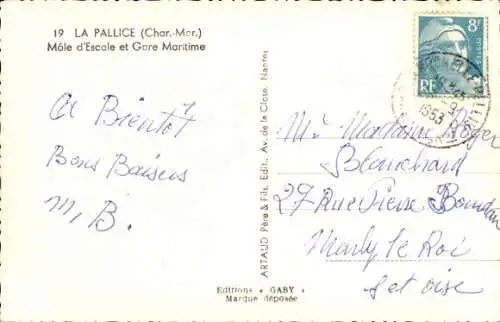 19 LA PALLICE (Char.-Mar.)
Môle d'Escale et Gare Maritime
A Bientôt
Bons Baisers
M. B.
ARTAUD Père & Fils, Edit., Av. de la Close, Nantes
8F
POSTES
RF
1953
Roger
Blanchard
27 Rue Pierre
Marly le Roi
S et oise
Editions « GABY »
Marque déposée